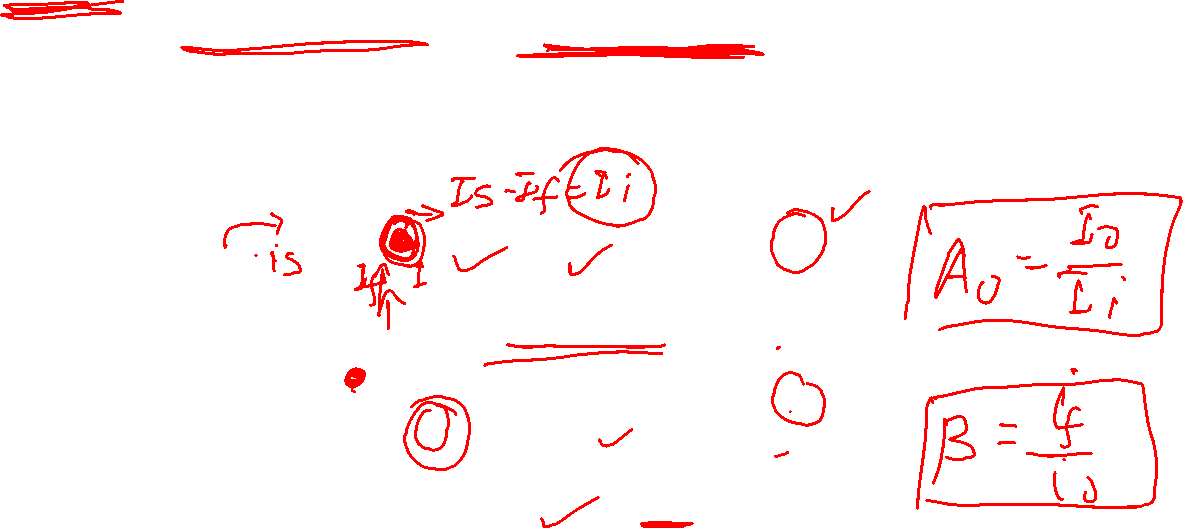 Is - If = Ii
is
If I
A0 = I0 / Ii
B = if / i0